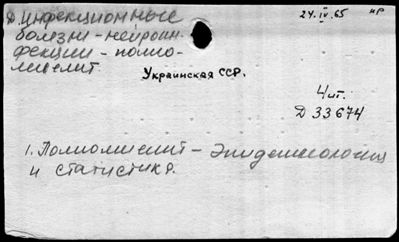 Д. инфекционные
24.IV.65
нр
болезни - нейроин-
фекции - полио-
миелит.
Украинская ССР.
4 ит.
Д 33674
1. Полиомиелит - Эпидемиология
и статистика.